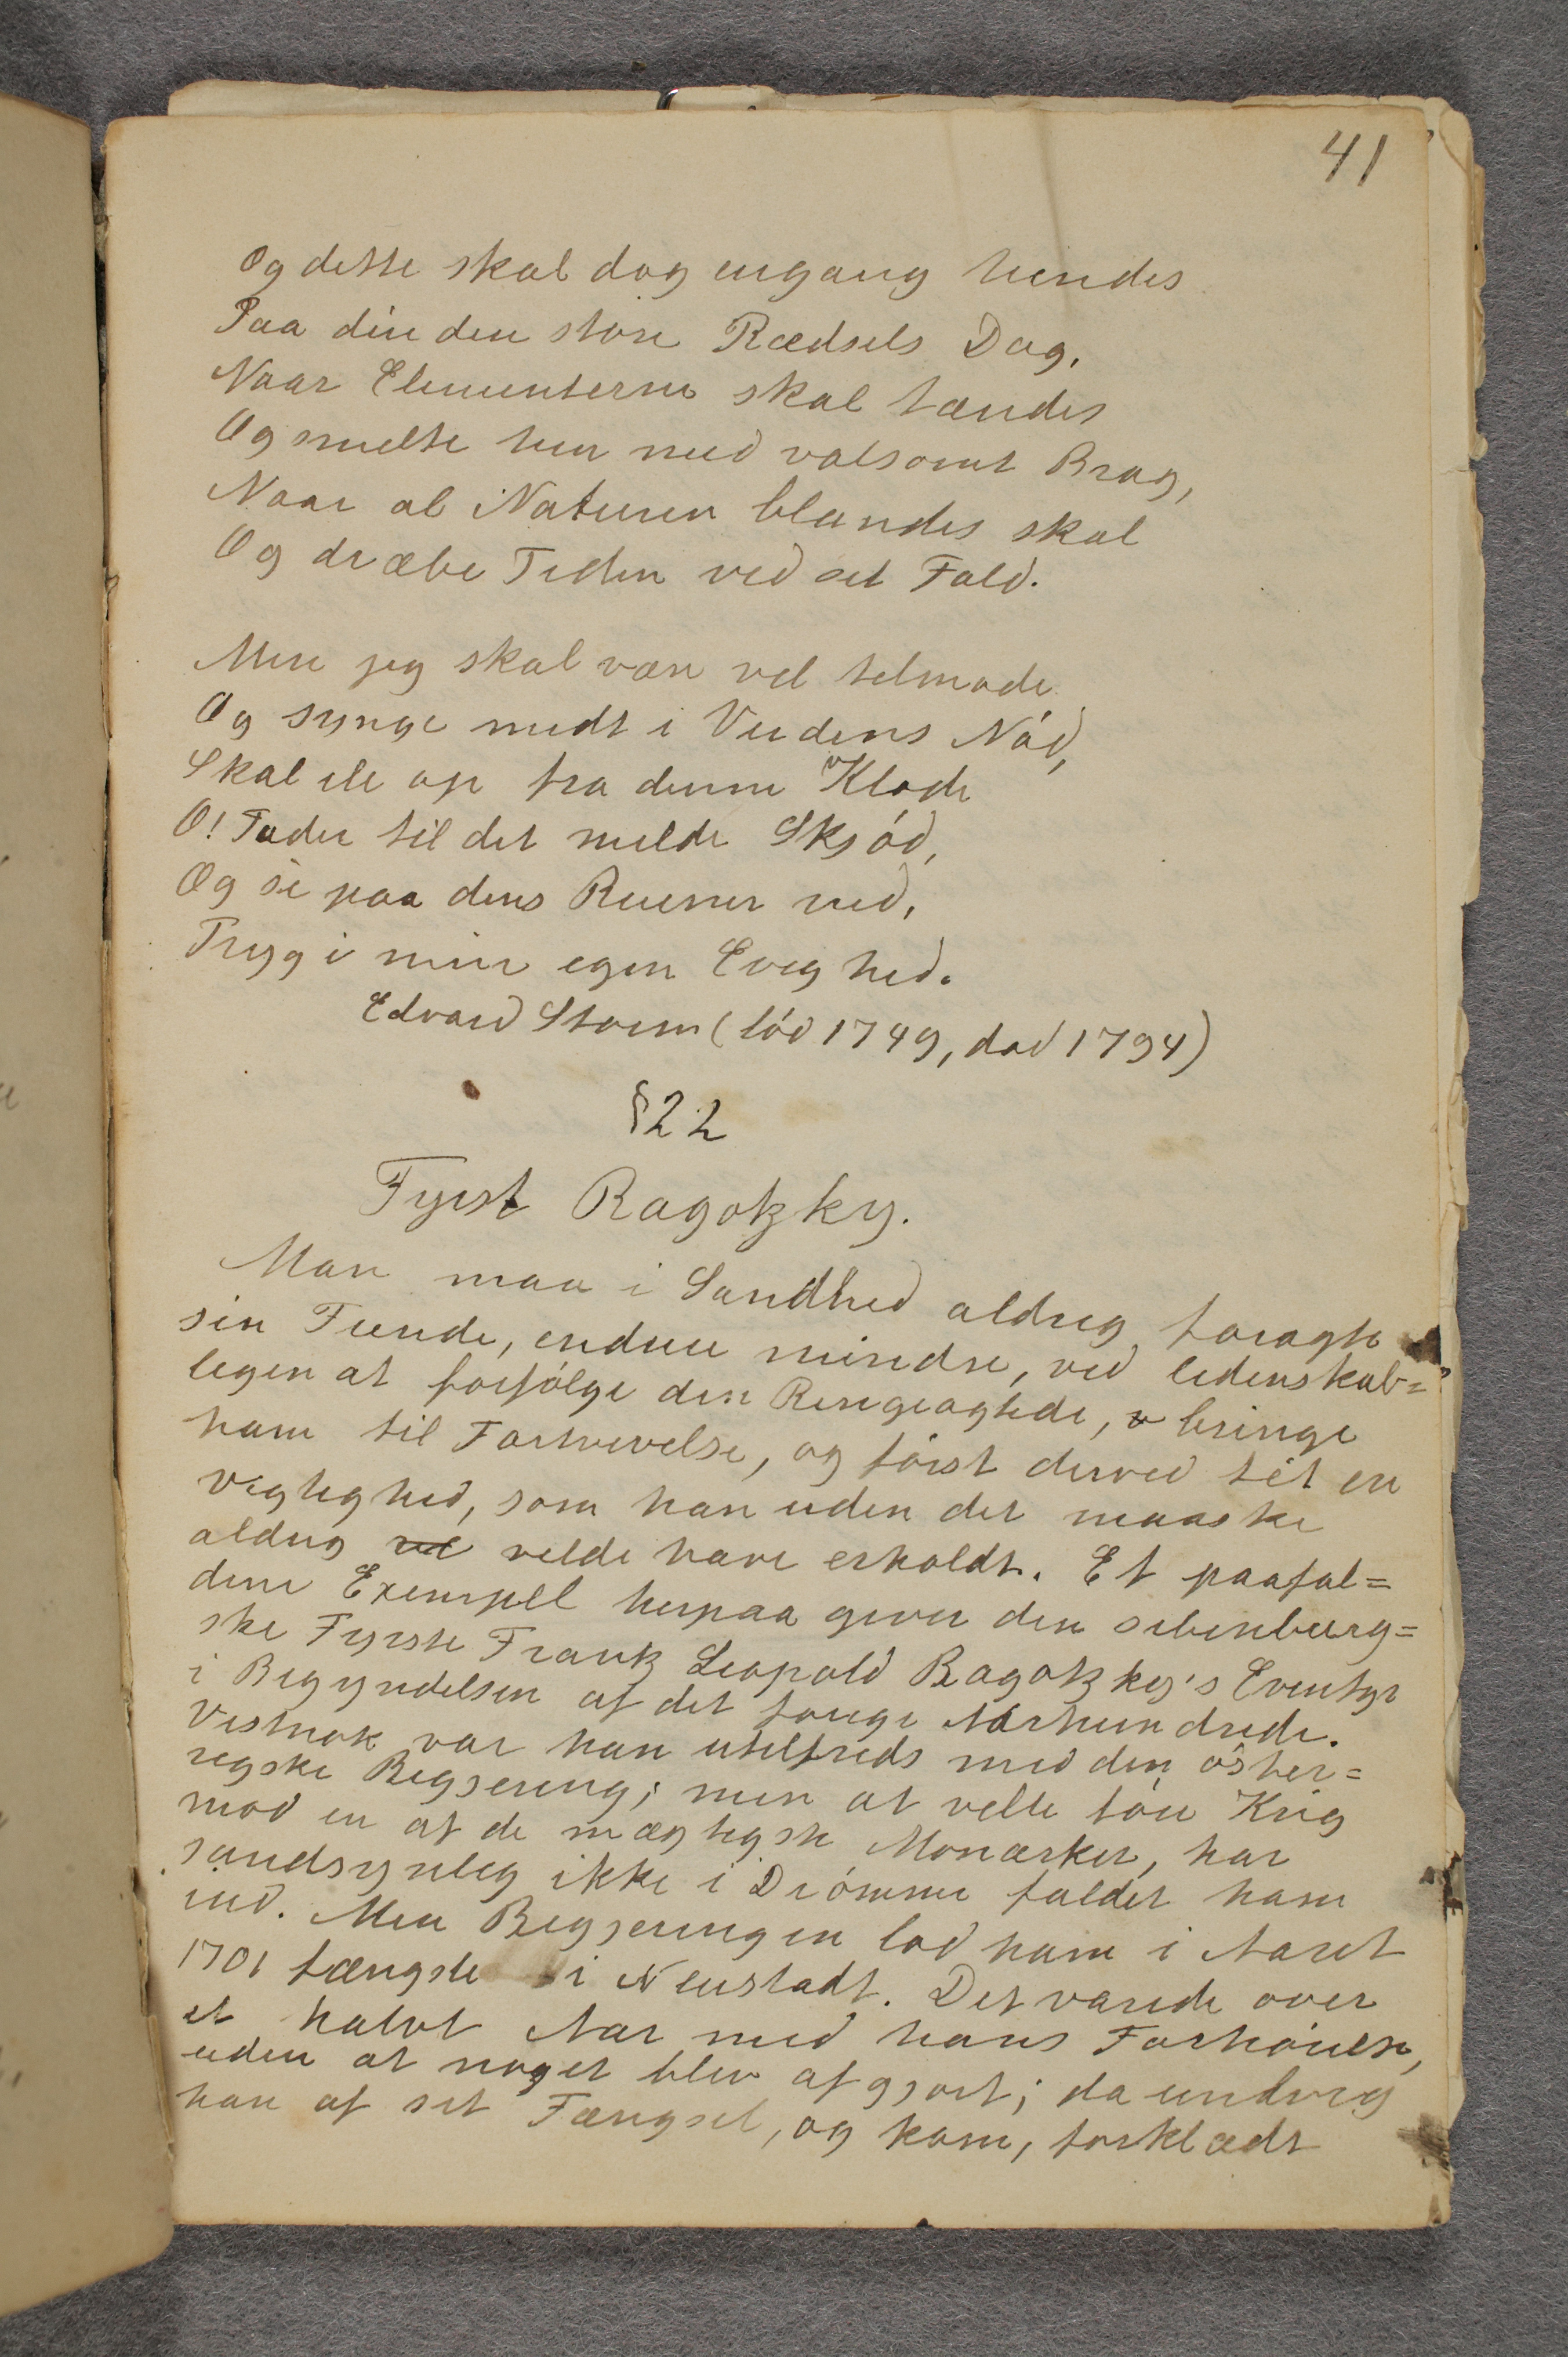 41
Og dette skal dog engang hendes
Paa din den store Rædsels Dag,
Naar Elementerne skal tændes
Og smelte hen med valsomt Brag,
Naar al Naturen blandes skal
Og dræbe Tiden ved sit Fald.
Men jeg skal være vel tilmode
Og synge midt i Verdens Nód,
Skal ile op fra denne Klode
O! Fader til dit milde Skjód,
Og se paa dens Ruiner ned,
Tryg i min egen Evighed.
Edvard Storm (fód 1749, dód 1794)
§22
Fyrst Ragotzky.
Man maa i Sandhed aldrig foragte
sin Fiende, endnu mindre, ved lidenskab=
ligen at forfólge den Ringeagtede, bringe
ham til Fortvivelse, og fórst derved til en
Vigtighed, som han uden det maaske
aldrig vil vilde have erholdt. Et paafal=
dene Exempell herpaa giver den sibenburg=
ske Fyrste Frank Leopold Ragotzky's Eventyr
i Begyndelsen af det forige Aarhundrede.
Vistnok var han utilfreds med den óster=
regske Regjering; men at ville fóre Krig
mod en af de mægtigste Monarker, har
sandsynlig ikke i Drómme faldet ham
ind. Men Regjeringen lod ham i Aaret
1701 fængsle i Neustadt. Det varede over
et halvt Aar med hans Forhórelse,
uden at noget blev afgjort; da undveg
han af sit Fængsel, og kom, forklædt